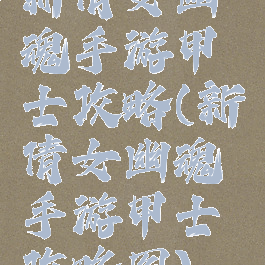 新倩女幽
魂手游甲
士攻略(新
倩女幽魂
手游甲士
攻略图)